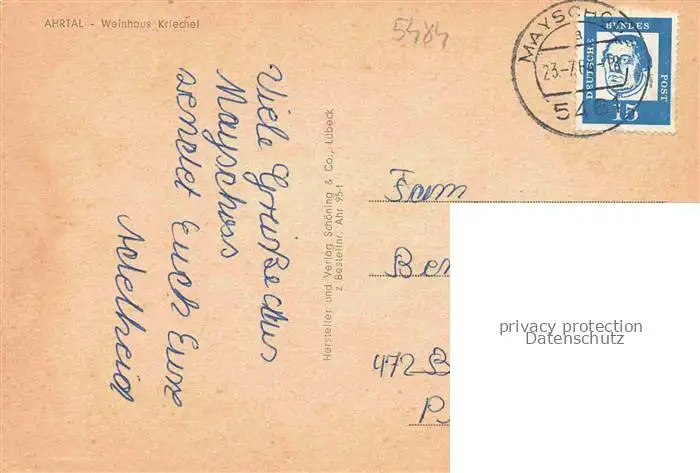 AHRTAL - Weinhaus Kriechel
5484
Viele Grüße aus
Mayschoss
sendet Euch Eure
Adelheid
Hersteller und Verlag Schöning & Co., Lübeck
z Bestellnr. Ahr 95-1
MAYSCHOSS
a
23.-7.
5481
DEUTSCHE BUNDES POST
15
Fam
Ben
472 B
privacy protection
Datenschutz